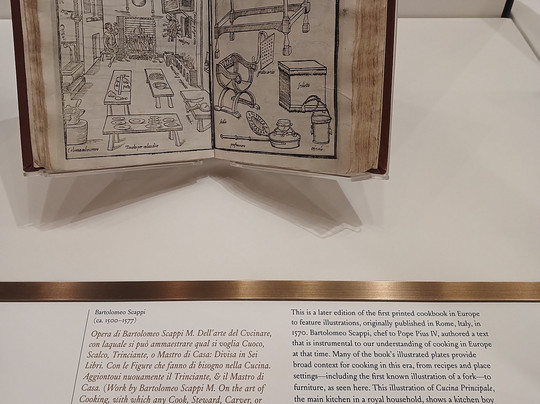 Bartolomeo Scappi
(ca. 1500–1577)
Opera di Bartolomeo Scappi M. Dell'arte del Cucinare,
con laquale si può ammaestrare qual si voglia Cuoco,
Scalco, Trinciante, o Mastro di Casa: Divisa in Sei
Libri. Con le Figure che fanno di bisogno nella Cucina.
Aggiontoui nuouamente il Trinciante, & il Mastro di
Casa. (Work by Bartolomeo Scappi M. On the art of
Cooking, with which any Cook, Steward, Carver, or
This is a later edition of the first printed cookbook in Europe
to feature illustrations, originally published in Rome, Italy, in
1570. Bartolomeo Scappi, chef to Pope Pius IV, authored a text
that is instrumental to our understanding of cooking in Europe
at that time. Many of the book's illustrated plates provide
broad context for cooking in this era, from recipes and place
settings—including the first known illustration of a fork—to
furniture, as seen here. This illustration of Cucina Principale,
the main kitchen in a royal household, shows a kitchen boy